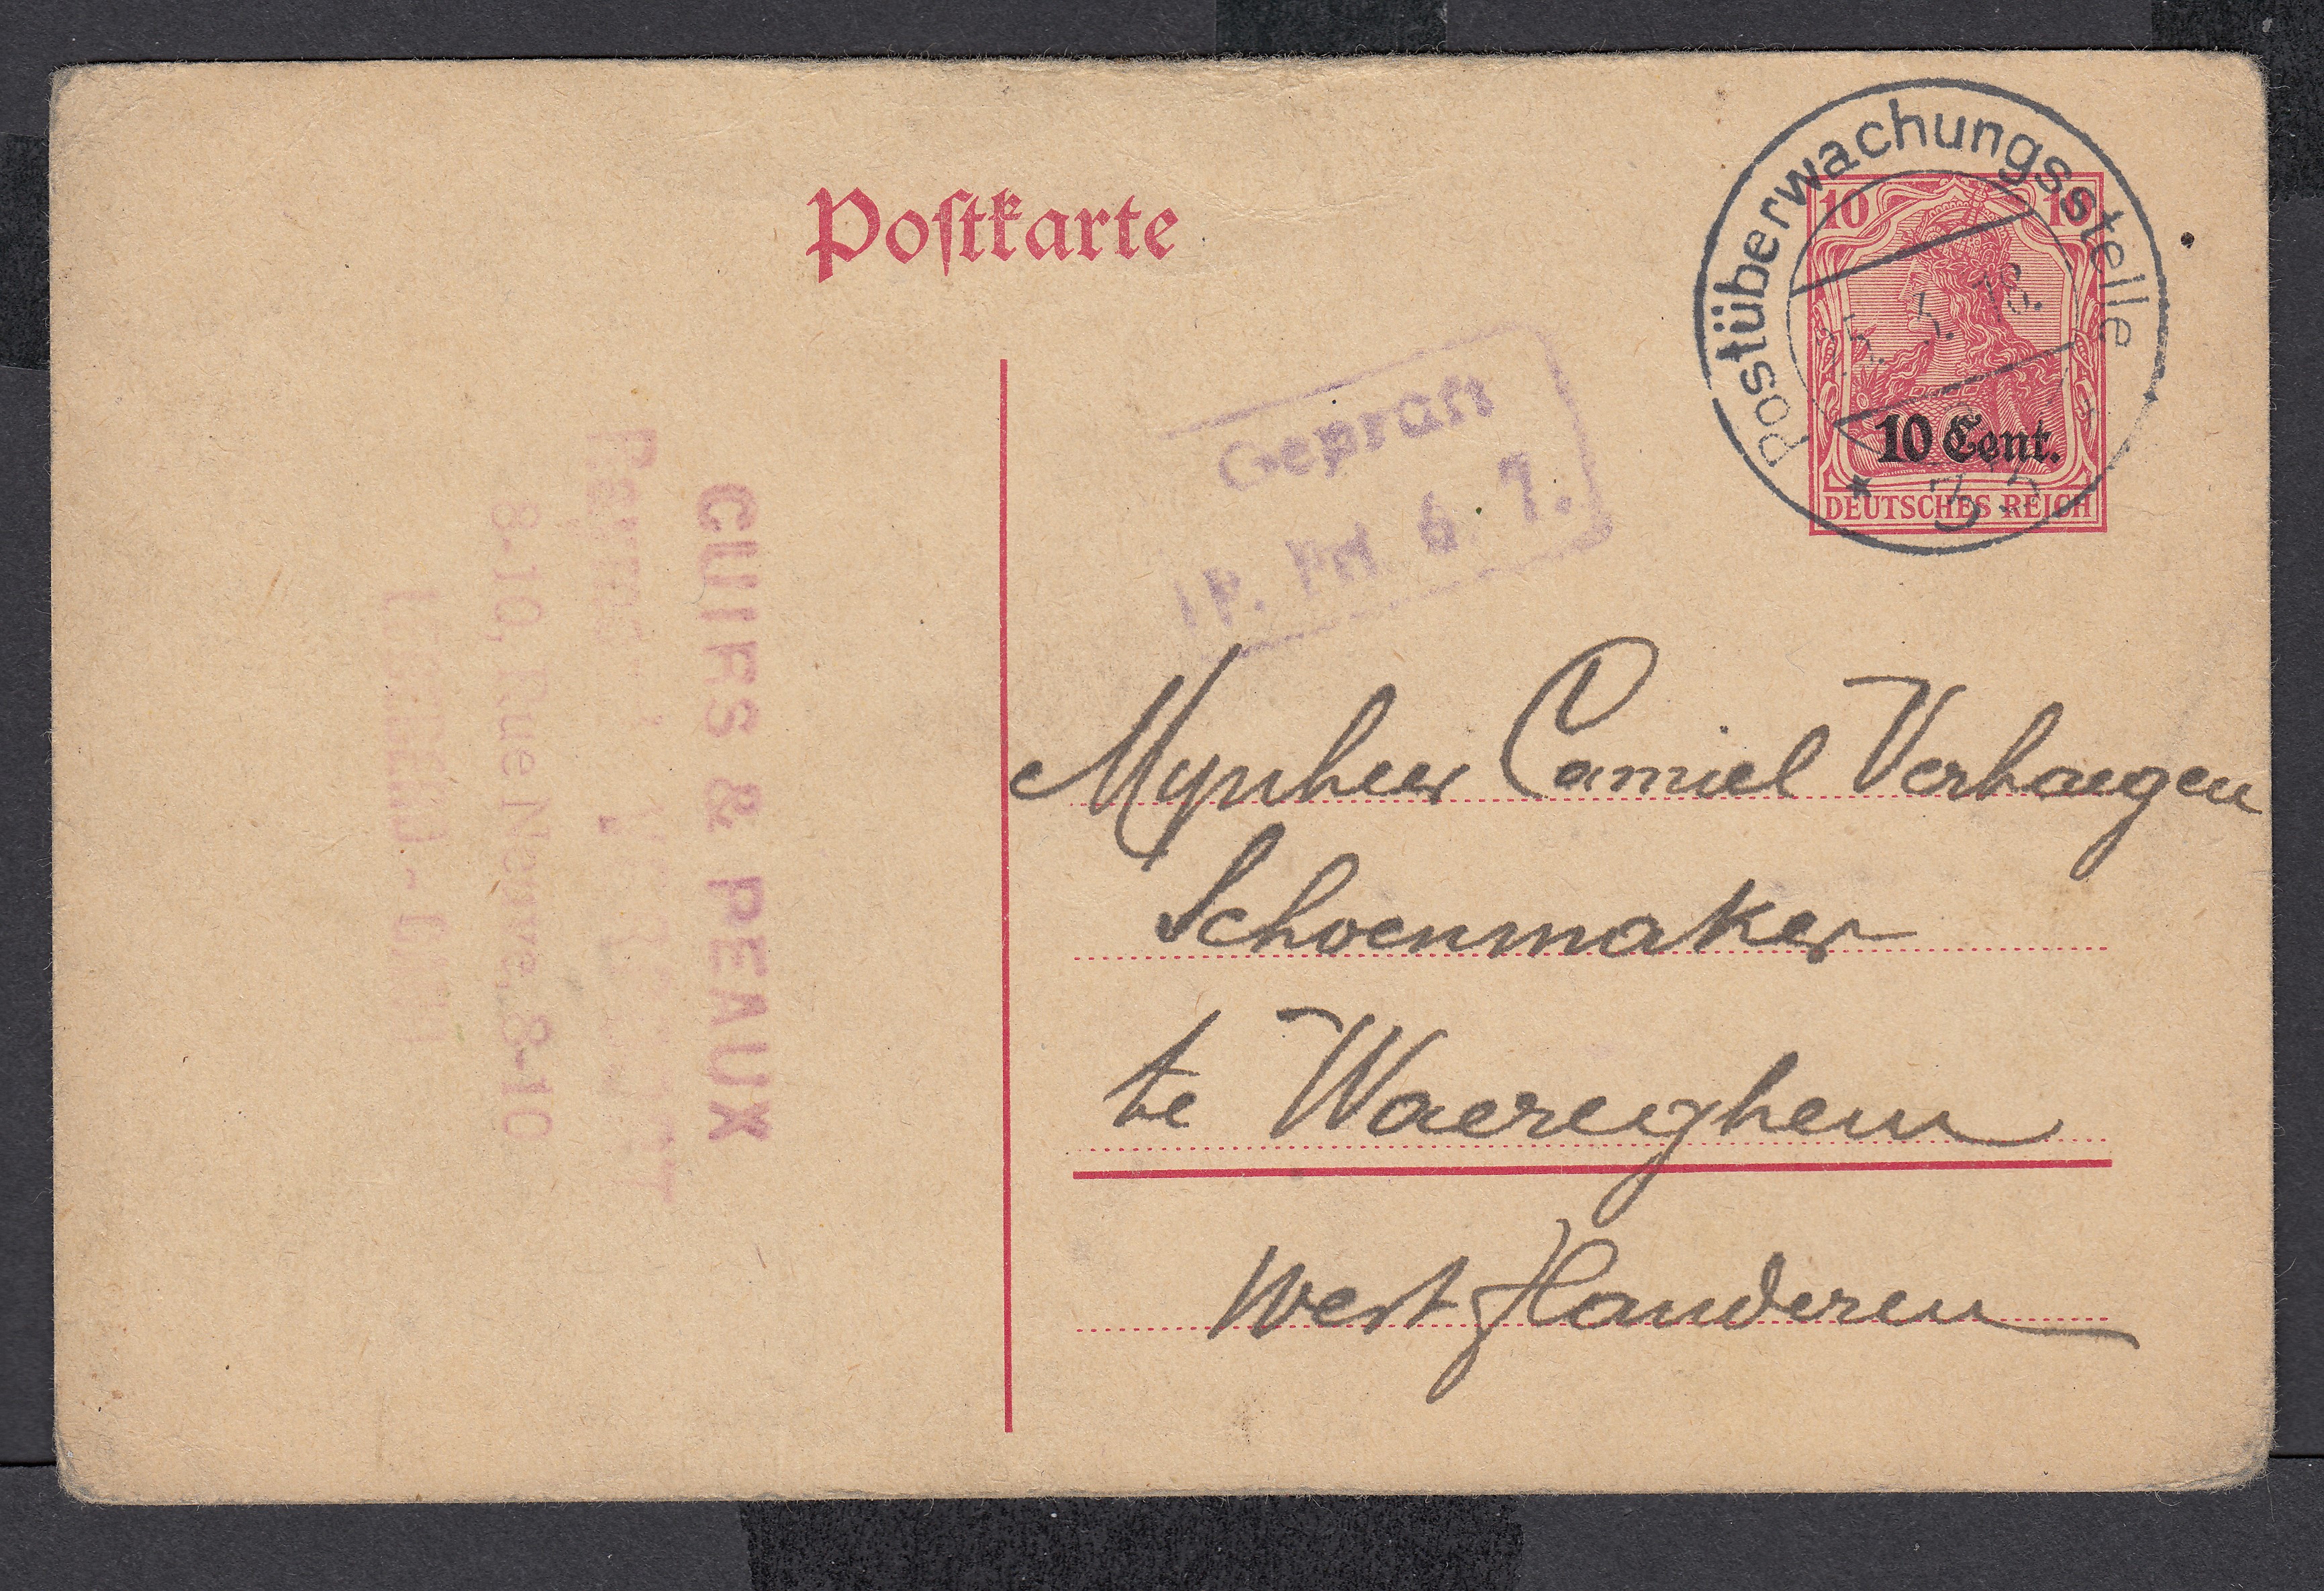 Postkarte
Postüberwachungsstelle
25. 3. 18.
* 33
10 10
10 Cent.
DEUTSCHES REICH
Geprüft
P. 6. 7.
Mynheer Camiel Verhaegen
Schoenmaker
te Waereghem
West Flanderen
CUIRS & PEAUX
8-10, Rue Neuve, 8-10